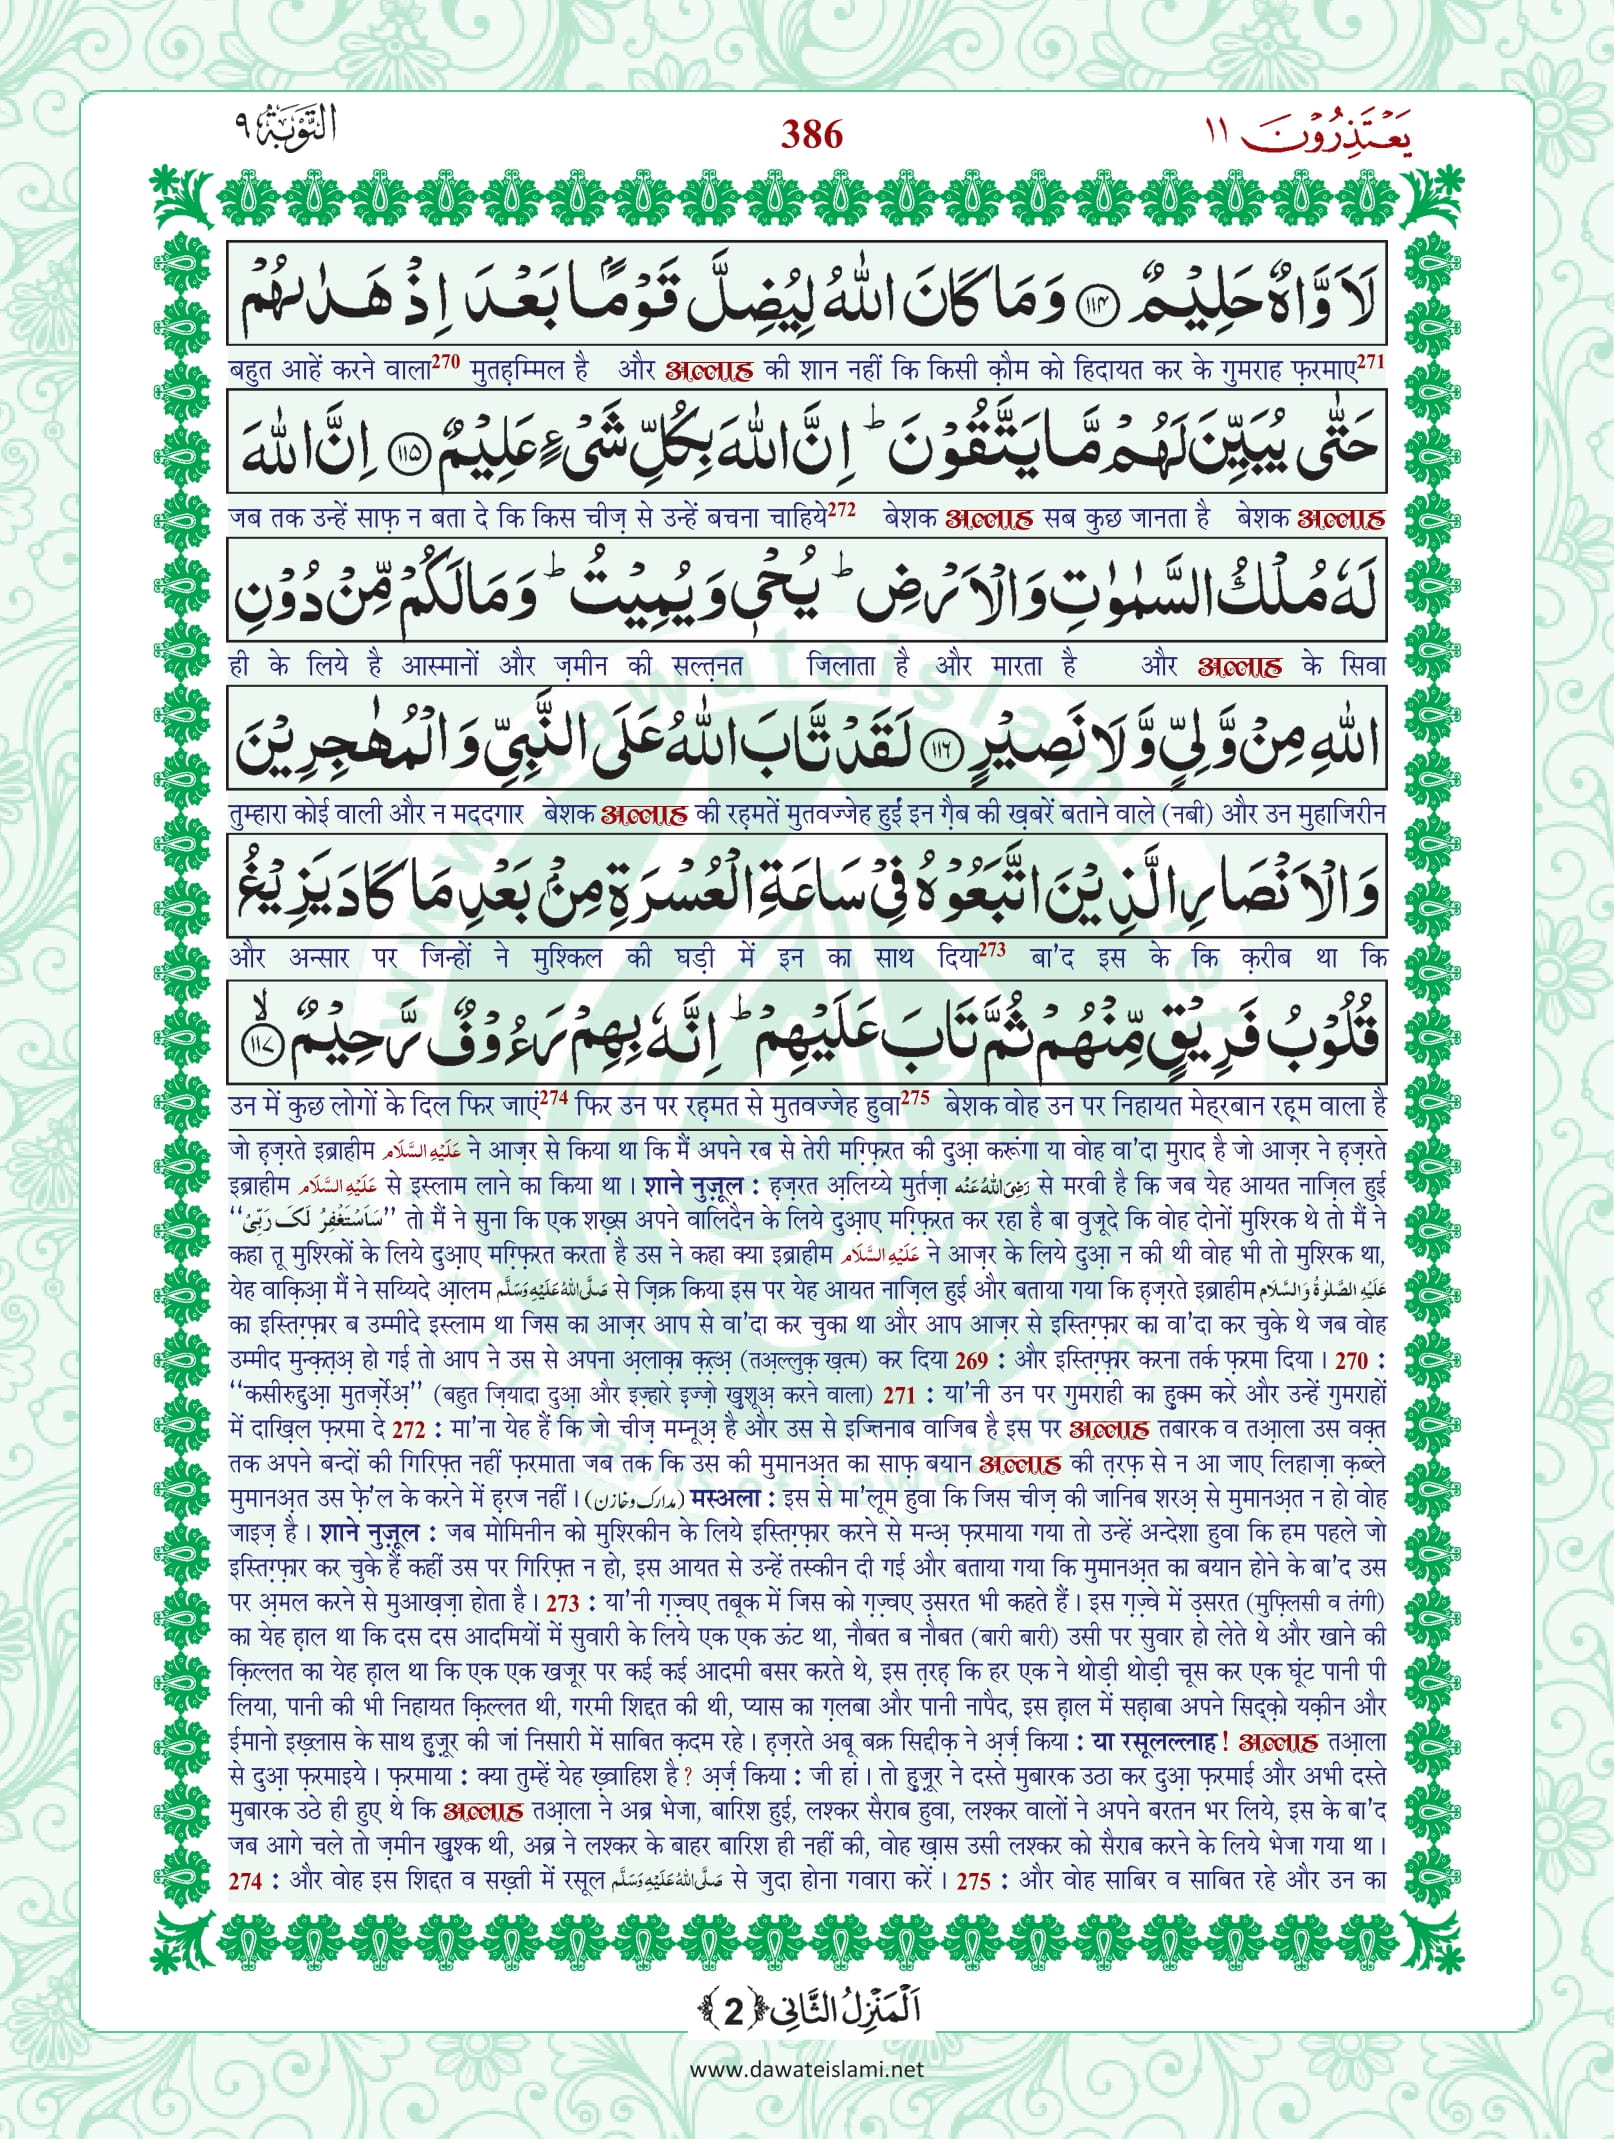 التَّوْبَة ٩
386
يَعْتَذِرُوْنَ ١١
لَاَوَّاهٌ حَلِيْمٌ ﴿۱۱۴﴾ وَمَا كَانَ اللّٰهُ لِيُضِلَّ قَوْمًۢا بَعْدَ اِذْ هَدٰىهُمْ
बहुत आहें करने वाला270 मुतह़म्मिल है और अल्लाह की शान नहीं कि किसी क़ौम को हिदायत कर के गुमराह फ़रमाए271
حَتّٰى يُبَيِّنَ لَهُمْ مَّا يَتَّقُوْنَ ؕ اِنَّ اللّٰهَ بِكُلِّ شَیْءٍ عَلِيْمٌ ﴿۱۱۵﴾ اِنَّ اللّٰهَ
जब तक उन्हें साफ़ न बता दे कि किस चीज़ से उन्हें बचना चाहिये272 बेशक अल्लाह सब कुछ जानता है बेशक अल्लाह
لَهٗ مُلْكُ السَّمٰوٰتِ وَالْاَرْضِ ؕ يُحْیٖ وَيُمِيْتُ ؕ وَمَا لَكُمْ مِّنْ دُوْنِ
ही के लिये है आस्मानों और ज़मीन की सल्त़नत जिलाता है और मारता है और अल्लाह के सिवा
اللّٰهِ مِنْ وَّلِیٍّ وَّلَا نَصِيْرٍ ﴿۱۱۶﴾ لَقَدْ تَّابَ اللّٰهُ عَلَى النَّبِیِّ وَالْمُهٰجِرِيْنَ
तुम्हारा कोई वाली और न मददगार बेशक अल्लाह की रह़मतें मुतवज्जेह हुईं इन ग़ैब की ख़बरें बताने वाले (नबी) और उन मुहाजिरीन
وَالْاَنْصَارِ الَّذِيْنَ اتَّبَعُوْهُ فِیْ سَاعَةِ الْعُسْرَةِ مِنْۢ بَعْدِ مَا كَادَ يَزِيْغُ
और अन्सार पर जिन्हों ने मुश्किल की घड़ी में इन का साथ दिया273 बा'द इस के कि क़रीब था कि
قُلُوْبُ فَرِيْقٍ مِّنْهُمْ ثُمَّ تَابَ عَلَيْهِمْ ؕ اِنَّهٗ بِهِمْ رَءُوْفٌ رَّحِيْمٌ ﴿۱۱۷﴾ۙ
उन में कुछ लोगों के दिल फिर जाएं274 फिर उन पर रह़मत से मुतवज्जेह हुवा275 बेशक वोह उन पर निहायत मेह्रबान रह़्म वाला है
जो ह़ज़रते इब्राहीम عَلَيْهِ السَّلَام ने आज़र से किया था कि मैं अपने रब से तेरी मग़्फ़िरत की दुआ़ करूंगा या वोह वा'दा मुराद है जो आज़र ने ह़ज़रते
इब्राहीम عَلَيْهِ السَّلَام से इस्लाम लाने का किया था । शाने नुज़ूल : ह़ज़रत अ़लिय्ये मुर्तज़ा رَضِیَ اللّٰهُ عَنْه से मरवी है कि जब येह आयत नाज़िल हुई
‘‘سَاَسْتَغْفِرُ لَكَ رَبِّیْ’’ तो मैं ने सुना कि एक शख़्स अपने वालिदैन के लिये दुआ़ए मग़्फ़िरत कर रहा है बा वुजूदे कि वोह दोनों मुश्रिक थे तो मैं ने
कहा तू मुश्रिकों के लिये दुआ़ए मग़्फ़िरत करता है उस ने कहा क्या इब्राहीम عَلَيْهِ السَّلَام ने आज़र के लिये दुआ़ न की थी वोह भी तो मुश्रिक था,
येह वाक़िआ़ मैं ने सय्यिदे आ़लम صَلَّى اللّٰهُ عَلَيْهِ وَسَلَّم से ज़िक्र किया इस पर येह आयत नाज़िल हुई और बताया गया कि ह़ज़रते इब्राहीम عَلَيْهِ الصَّلٰوةُ وَالسَّلَام
का इस्तिग़्फ़ार ब उम्मीदे इस्लाम था जिस का आज़र आप से वा'दा कर चुका था और आप आज़र से इस्तिग़्फ़ार का वा'दा कर चुके थे जब वोह
उम्मीद मुन्क़त़अ़ हो गई तो आप ने उस से अपना अ़लाक़ा क़त़्अ़ (तअ़ल्लुक़ ख़त्म) कर दिया 269 : और इस्तिग़्फ़ार करना तर्क फ़रमा दिया । 270 :
‘‘कसीरुद्दुआ़ मुतज़र्रेअ़’’ (बहुत ज़ियादा दुआ़ और इज़्हारे इ़ज्ज़ो ख़ुशूअ़ करने वाला) 271 : या'नी उन पर गुमराही का ह़ुक्म करे और उन्हें गुमराहों
में दाख़िल फ़रमा दे 272 : मा'ना येह हैं कि जो चीज़ मम्नूअ़ है और उस से इज्तिनाब वाजिब है इस पर अल्लाह तबारक व तआ़ला उस वक़्त
तक अपने बन्दों की गिरिफ़्त नहीं फ़रमाता जब तक कि उस की मुमानअ़त का साफ़ बयान अल्लाह की त़रफ़ से न आ जाए लिहाज़ा क़ब्ले
मुमानअ़त उस फ़े'ल के करने में ह़रज नहीं । (مدارک و خازن) मस्अला : इस से मा'लूम हुवा कि जिस चीज़ की जानिब शरअ़ से मुमानअ़त न हो वोह
जाइज़ है । शाने नुज़ूल : जब मोमिनीन को मुश्रिकीन के लिये इस्तिग़्फ़ार करने से मन्अ़ फ़रमाया गया तो उन्हें अन्देशा हुवा कि हम पहले जो
इस्तिग़्फ़ार कर चुके हैं कहीं उस पर गिरिफ़्त न हो, इस आयत से उन्हें तस्कीन दी गई और बताया गया कि मुमानअ़त का बयान होने के बा'द उस
पर अ़मल करने से मुआख़ज़ा होता है । 273 : या'नी ग़ज़्वए तबूक में जिस को ग़ज़्वए उ़सरत भी कहते हैं । इस ग़ज़्वे में उ़सरत (मुफ़्लिसी व तंगी)
का येह ह़ाल था कि दस दस आदमियों में सुवारी के लिये एक एक ऊंट था, नौबत ब नौबत (बारी बारी) उसी पर सुवार हो लेते थे और खाने की
क़िल्लत का येह ह़ाल था कि एक एक खजूर पर कई कई आदमी बसर करते थे, इस त़रह़ कि हर एक ने थोड़ी थोड़ी चूस कर एक घूंट पानी पी
लिया, पानी की भी निहायत क़िल्लत थी, गरमी शिद्दत की थी, प्यास का ग़लबा और पानी नापैद, इस ह़ाल में सह़ाबा अपने सिद्क़ो यक़ीन और
ईमानो इख़्लास के साथ ह़ुज़ूर की जां निसारी में साबित क़दम रहे । ह़ज़रते अबू बक्र सिद्दीक़ ने अ़र्ज़ किया : या रसूलल्लाह ! अल्लाह तआ़ला
से दुआ़ फ़रमाइये । फ़रमाया : क्या तुम्हें येह ख़्वाहिश है ? अ़र्ज़ किया : जी हां । तो ह़ुज़ूर ने दस्ते मुबारक उठा कर दुआ़ फ़रमाई और अभी दस्ते
मुबारक उठे ही हुए थे कि अल्लाह तआ़ला ने अब्र भेजा, बारिश हुई, लश्कर सैराब हुवा, लश्कर वालों ने अपने बरतन भर लिये, इस के बा'द
जब आगे चले तो ज़मीन ख़ुश्क थी, अब्र ने लश्कर के बाहर बारिश ही नहीं की, वोह ख़ास उसी लश्कर को सैराब करने के लिये भेजा गया था ।
274 : और वोह इस शिद्दत व सख़्ती में रसूल صَلَّى اللّٰهُ عَلَيْهِ وَسَلَّم से जुदा होना गवारा करें । 275 : और वोह साबिर व साबित रहे और उन का
اَلْمَنْزِلُ الثَّانِی ﴿2﴾
www.dawateislami.net